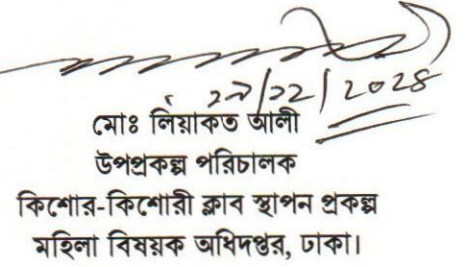 ২৯/১২/২০২৪
মোঃ লিয়াকত আলী
উপপ্রকল্প পরিচালক
কিশোর-কিশোরী ক্লাব স্থাপন প্রকল্প
মহিলা বিষয়ক অধিদপ্তর, ঢাকা।